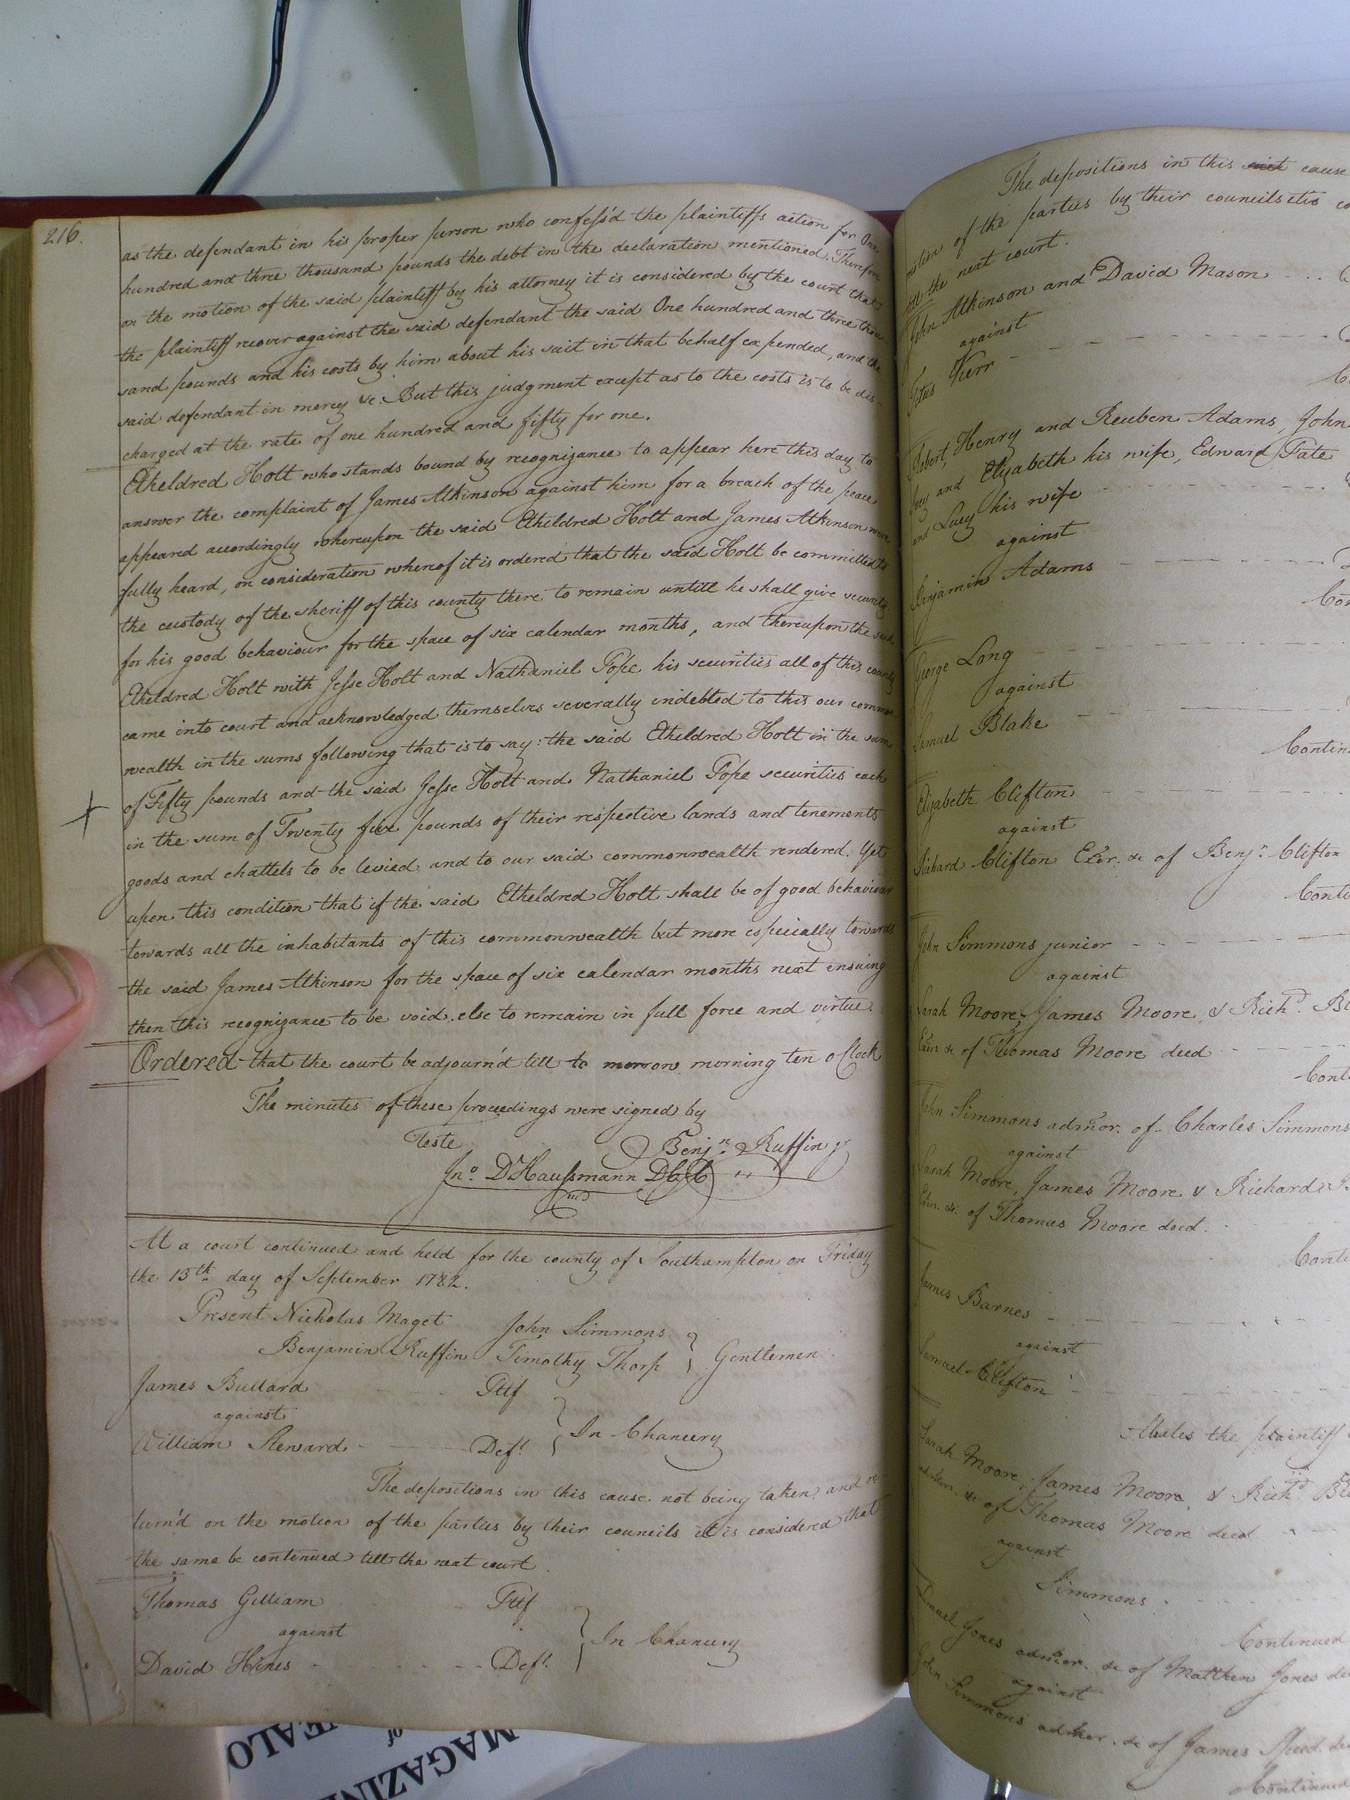 216.
as the defendant in his proper person who confess'd the plaintiffs action for One
hundred and three thousand pounds the debt in the declaration mentioned. Therefore
on the motion of the said plaintiff by his attorney it is considered by the court that
the plaintiff recover against the said defendant the said One hundred and three thou
sand pounds and his costs by him about his suit in that behalf expended, and the
said defendant in mercy &c. But this judgment except as to the costs is to be dis-
charged at the rate of one hundred and fifty for one.
Etheldred Holt who stands bound by recognizance to appear here this day to
answer the complaint of James Atkinson against him for a breach of the peace
appeared accordingly whereupon the said Etheldred Holt and James Atkinson were
fully heard, on consideration whereof it is ordered that the said Holt be committed to
the custody of the sheriff of this county there to remain untill he shall give security
for his good behaviour for the space of six calendar months, and thereupon the said
Etheldred Holt with Jesse Holt and Nathaniel Pope his securities all of this county
came into court and acknowledged themselves severally indebted to this our common
wealth in the sums following that is to say: the said Etheldred Holt in the sum
of Fifty pounds and the said Jesse Holt and Nathaniel Pope securities each
in the sum of Twenty five pounds of their respective lands and tenements
goods and chattels to be levied and to our said commonwealth rendered. Yet
upon this condition that if the said Etheldred Holt shall be of good behaviour
towards all the inhabitants of this commonwealth but more especially towards
the said James Atkinson for the space of six calendar months next ensuing
then this recognizance to be void, else to remain in full force and virtue.
Ordered that the court be adjourn'd till to morrow morning ten o Clock
The minutes of these proceedings were signed by
Teste Benjn. Ruffin jr
Jno. D'Haussmann DClk
At a court continued and held for the county of Southampton on Friday
the 13th. day of September 1782.
Present Nicholas Maget John Simmons
Benjamin Ruffin Timothy Thorp } Gentlemen
James Bullard Pltf
against
William Steward Deft. } In Chancery
The depositions in this cause not being taken and re-
turn'd on the motion of the parties by their councils it is considered that
the same be continued till the next court.
Thomas Gilliam Pltf
against } In Chancery
David Hines Deft.
The depositions in this suit cause
of the parties by their councils
the next court.
John Atkinson and David Mason
against
Titus Kerr
Robert, Henry and Reuben Adams, John
and Elizabeth his wife, Edward Tate
and Lucy his wife
against
Benjamin Adams
George Long
against
Samuel Blake
Contin
Elizabeth Clifton
against
Richard Clifton Exor. &c of Benjn. Clifton
Conti
John Simmons junior
against
Sarah Moore, James Moore & Richd.
Exors &c of Thomas Moore decd
Cont
John Simmons admor. of Charles Simmons
against
Sarah Moore, James Moore & Richard
of Thomas Moore decd.
Conti
James Barnes
against
Samuel Clifton
Abates the plaintiff
Sarah Moore, James Moore, & Richd
of Thomas Moore decd
against
Simmons
Continued
Jones admor. &c of Matthew Jones
against
John Simmons admor. &c of James Speed
Continued
MAGAZINE
of